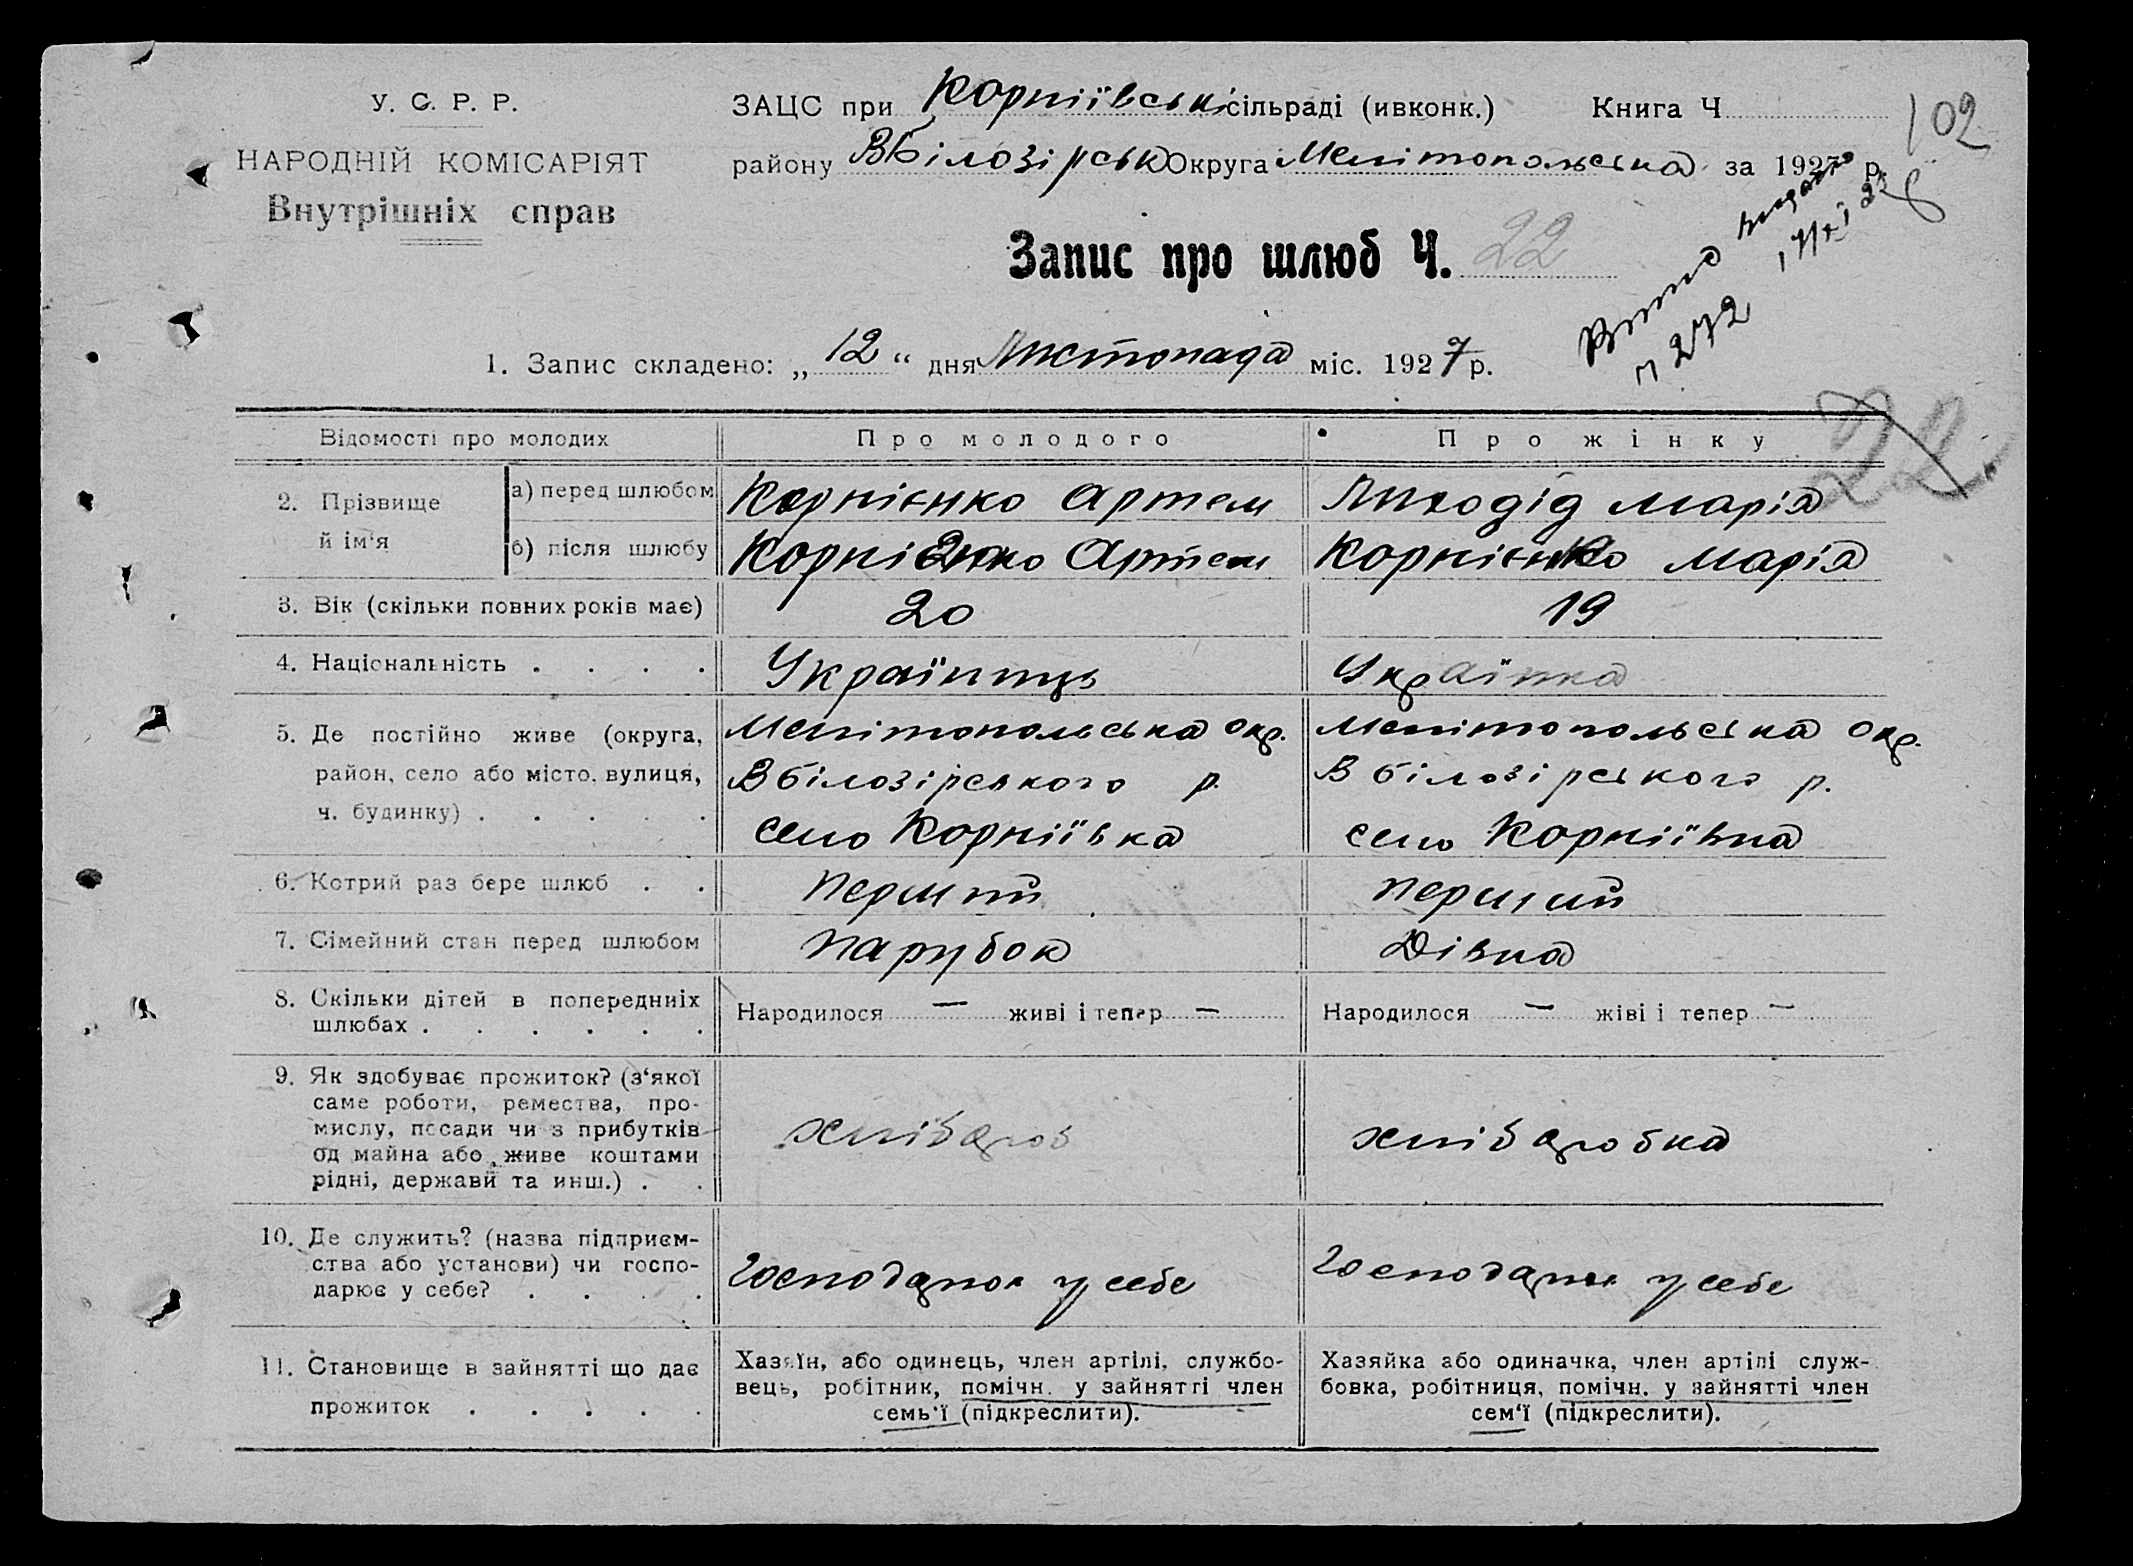 У. С. Р. Р.
НАРОДНІЙ КОМІСАРІЯТ
Внутрішніх справ
ЗАЦС при Корніївські сільраді (ивконк.) Книга Ч
102
району ВБілозірськ Округа Мелітопольська за 1927 р.
Запис про шлюб Ч. 22
272
1. Запис складено: „ 12 “ дня Листопада міс. 1927 р.
22
Відомості про молодих
Про молодого
Про жінку
2. Прізвище й ім'я
а) перед шлюбом
Корнієнко Артем
Лиходід Марія
б) після шлюбу
Корнієнко Артем
Корнієнко Марія
3. Вік (скільки повних років має)
20
19
4. Національність
Українець
Українка
5. Де постійно живе (округа,
район, село або місто, вулиця,
ч. будинку)
Мелітопольська окр.
Вбілозірського р.
село Корніївка
Мелітопольська окр.
Вбілозірського р.
село Корніївка
6. Котрий раз бере шлюб
перший
перший
7. Сімейний стан перед шлюбом
парубок
Дівка
8. Скільки дітей в попередниіх
шлюбах
Народилося — живі і тепер —
Народилося — жіві і тепер —
9. Як здобуває прожиток? (з'якої
саме роботи, ремества, про-
мислу, посади чи з прибутків
од майна або живе коштами
рідні, держави та инш.)
хлібороб
хліборобка
10. Де служить? (назва підприєм-
ства або установи) чи госпо-
дарює у себе?
Господарює у себе
Господарює у себе
11. Становище в зайнятті що дає
прожиток
Хазяїн, або одинець, член артілі, службо-
вець, робітник, помічн. у зайнятті член
семь'ї (підкреслити).
Хазяйка або одиначка, член артілі служ-
бовка, робітниця, помічн. у зайнятті член
сем'ї (підкреслити).